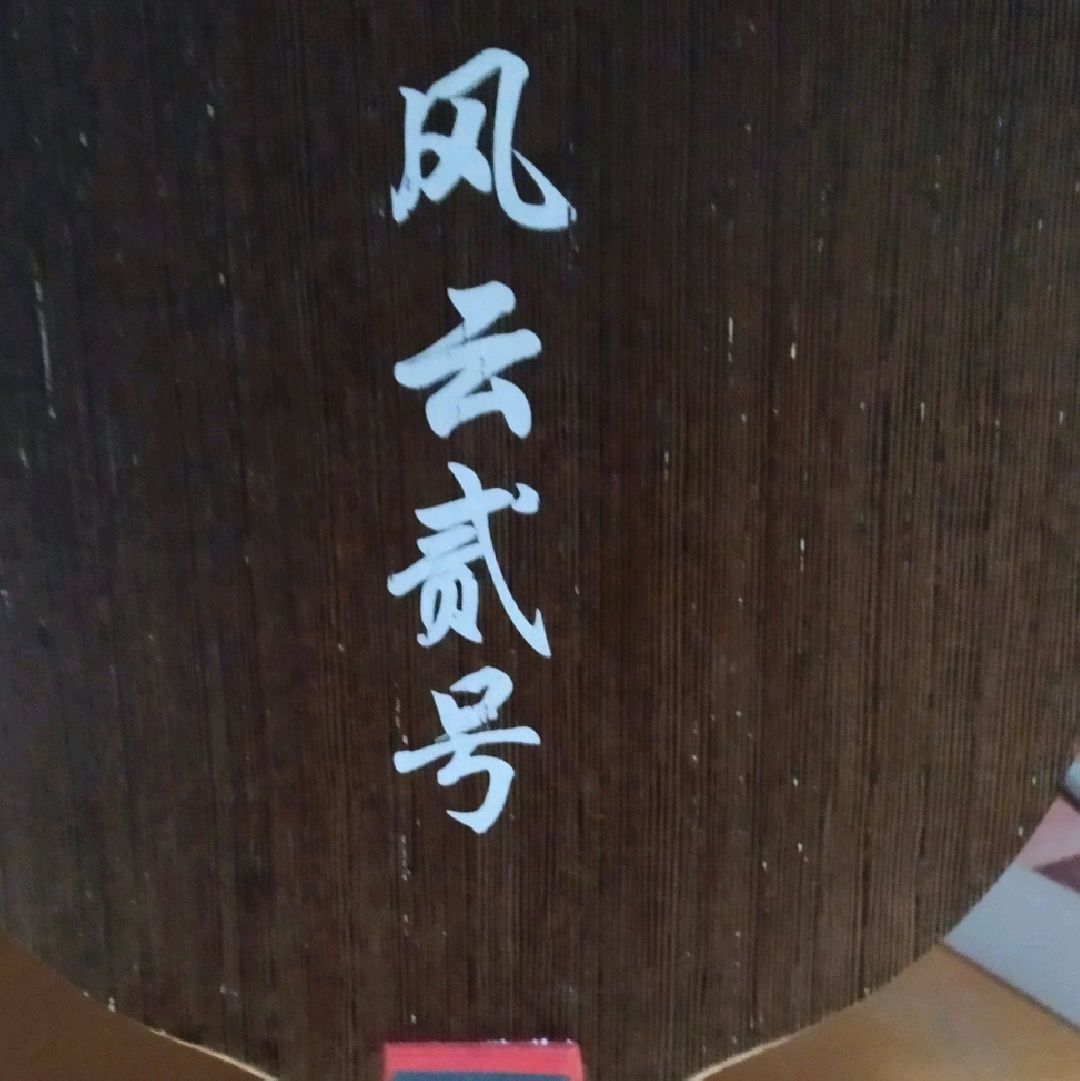 风云贰号